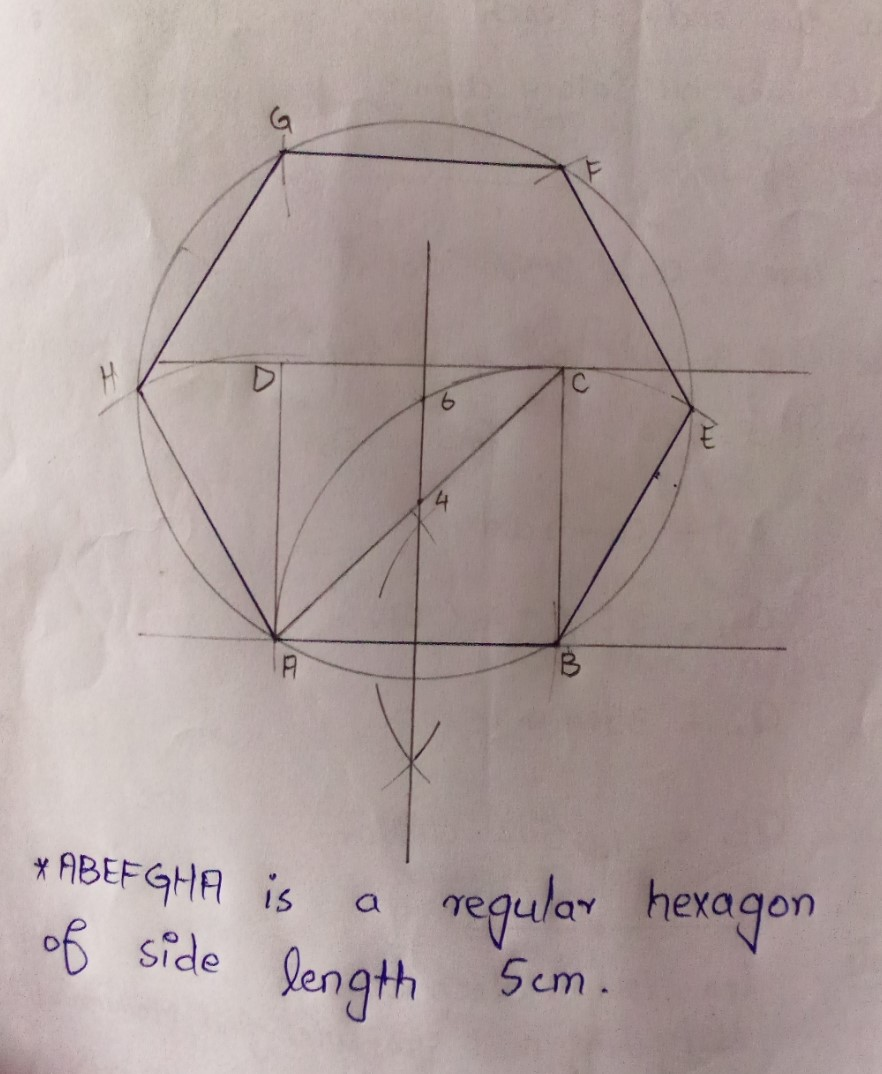 G
F
H
D
C
6
E
4
A
B
*ABEFGHA is a regular hexagon
of side length 5cm.